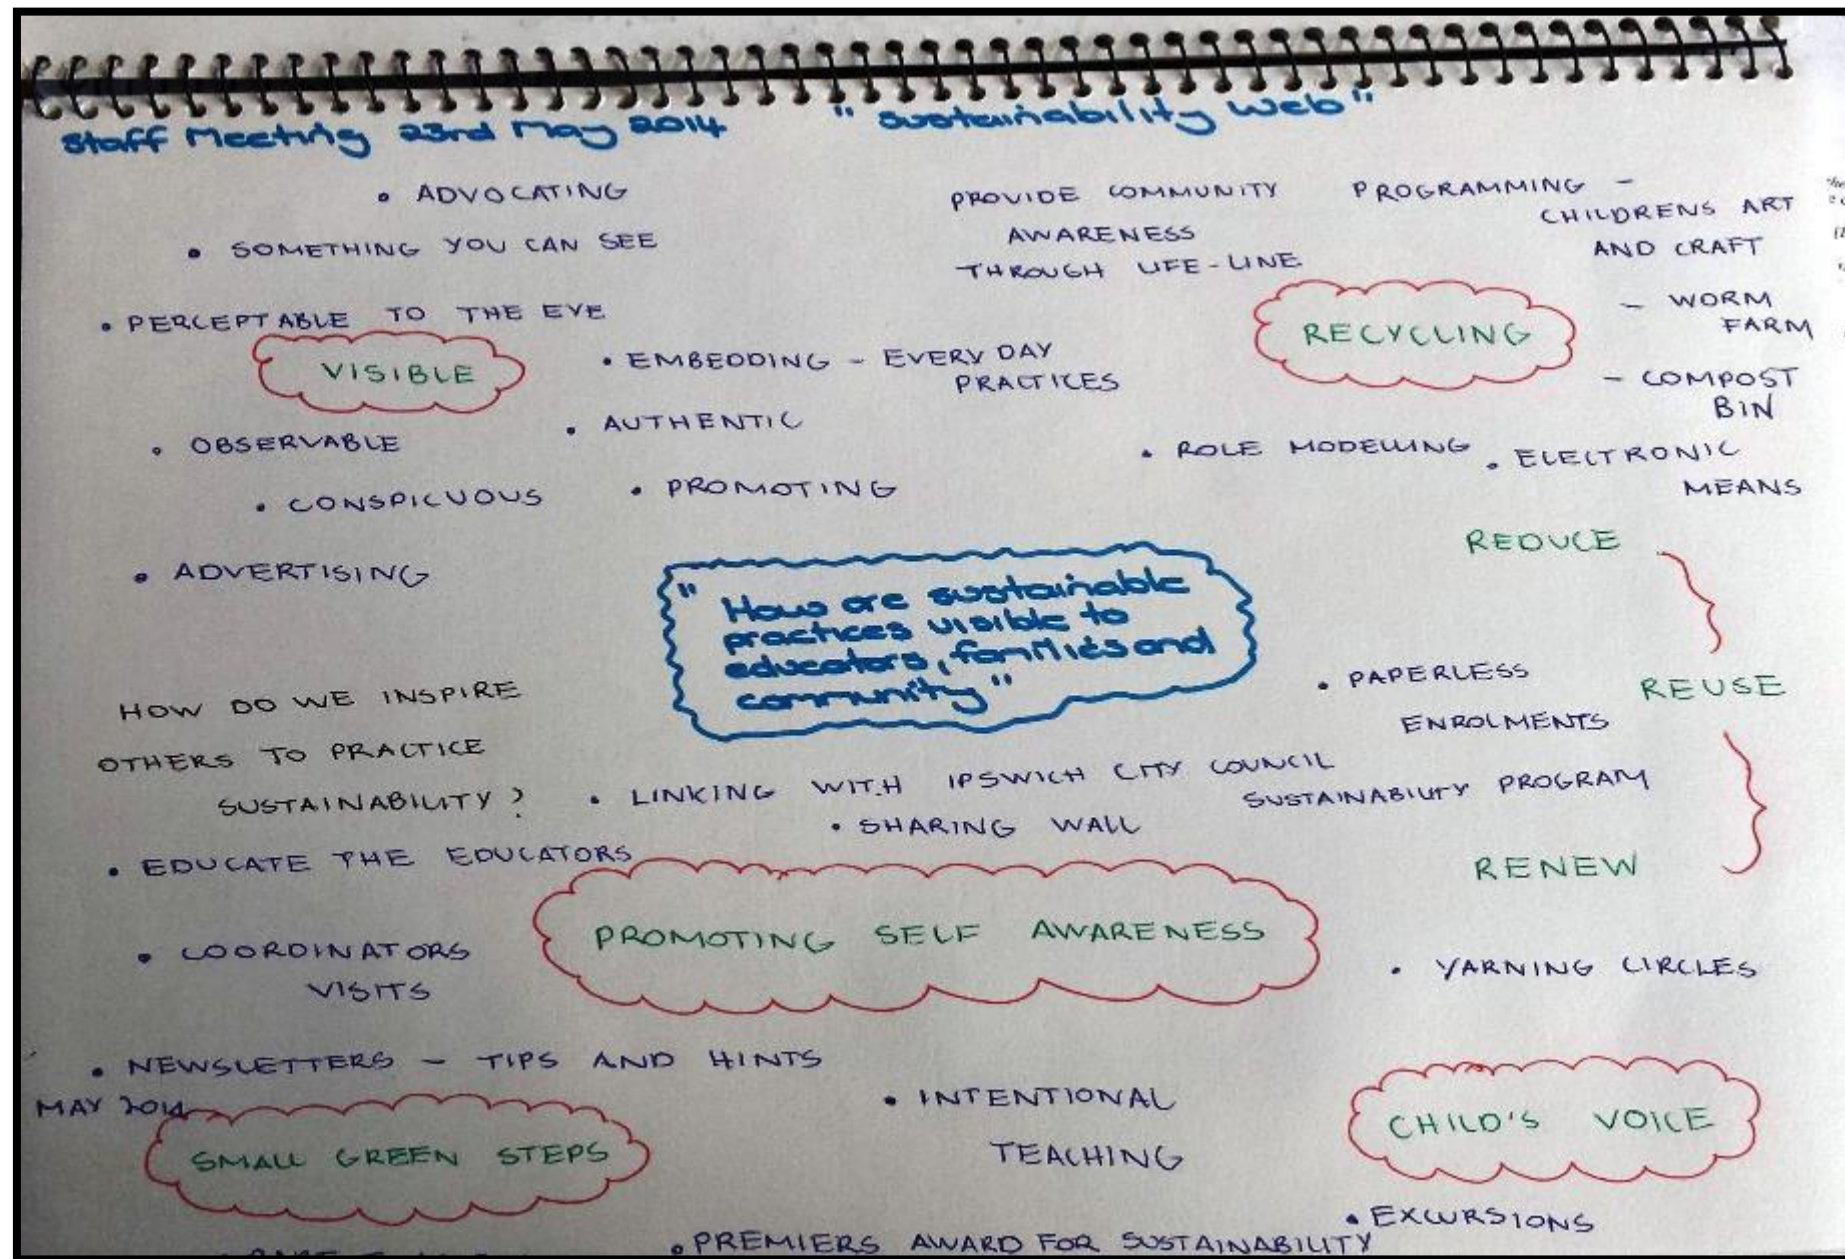 Staff Meeting 23rd May 2014 "Sustainability Web"
• ADVOCATING
• SOMETHING YOU CAN SEE
• PERCEPTABLE TO THE EYE
VISIBLE
• EMBEDDING - EVERY DAY
PRACTICES
• OBSERVABLE
• AUTHENTIC
• CONSPICUOUS
• PROMOTING
• ADVERTISING
PROVIDE COMMUNITY
AWARENESS
THROUGH LIFE-LINE
PROGRAMMING -
CHILDRENS ART
AND CRAFT
- WORM
FARM
- COMPOST
BIN
RECYCLING
• ROLE MODELLING
• ELECTRONIC
MEANS
REDUCE
REUSE
RENEW
"How are sustainable
practices visible to
educators, families and
community"
• PAPERLESS
ENROLMENTS
HOW DO WE INSPIRE
OTHERS TO PRACTICE
SUSTAINABILITY?
• LINKING WITH IPSWICH CITY COUNCIL
SUSTAINABILITY PROGRAM
• SHARING WALL
• EDUCATE THE EDUCATORS
PROMOTING SELF AWARENESS
• COORDINATORS
VISITS
• YARNING CIRCLES
• NEWSLETTERS - TIPS AND HINTS
MAY 2014
SMALL GREEN STEPS
• INTENTIONAL
TEACHING
CHILD'S VOICE
• EXCURSIONS
• PREMIERS AWARD FOR SUSTAINABILITY